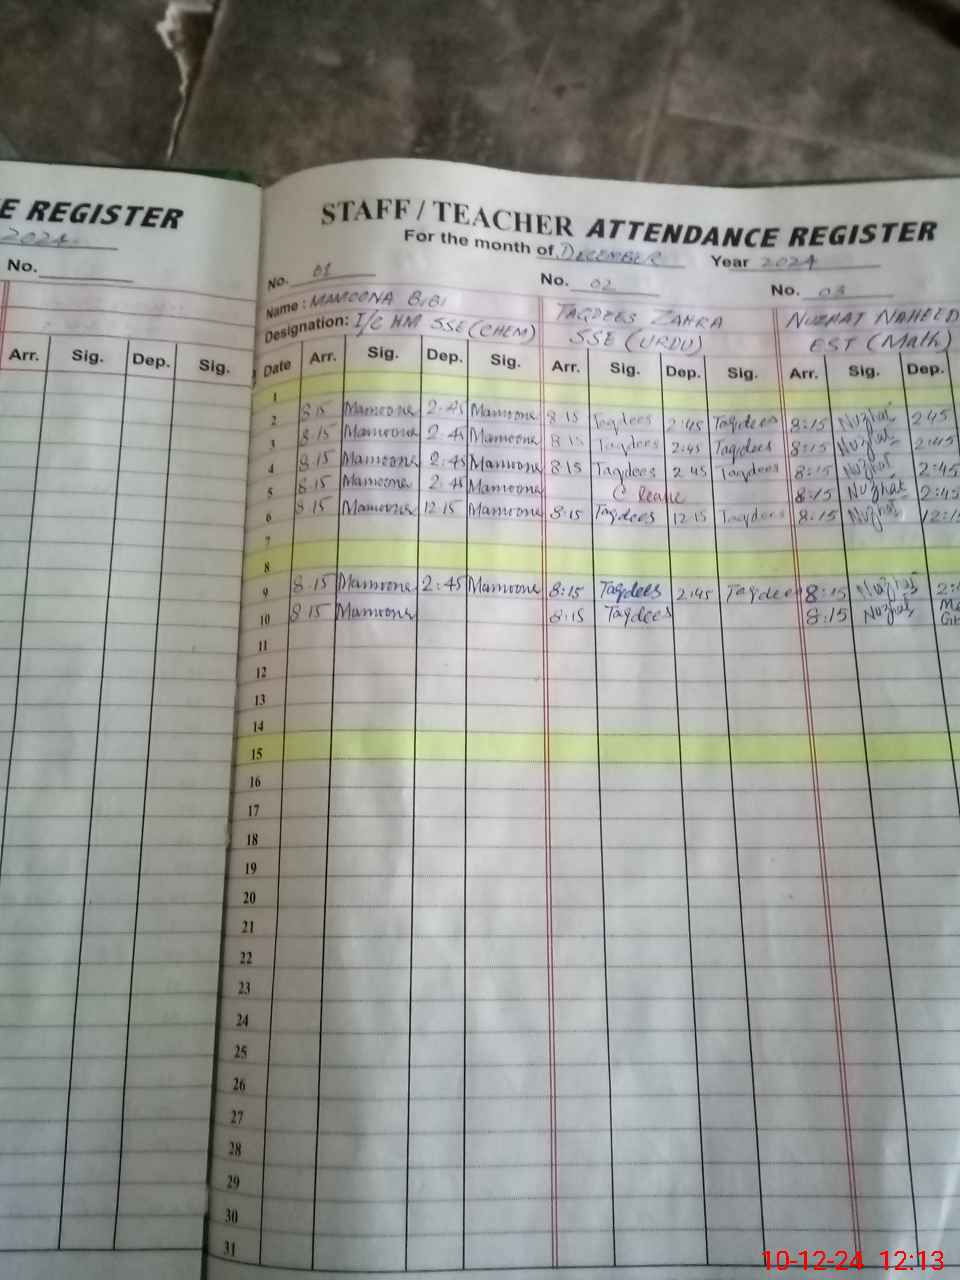 E REGISTER
2024
No.
Arr. Sig. Dep. Sig.
STAFF / TEACHER ATTENDANCE REGISTER
For the month of DECEMBER Year 2024
No. 01 No. 02 No. 03
Name : MAMOONA BIBI TAQDEES ZAHRA NUZHAT NAHEED
Designation: I/C HM SSE (CHEM) SSE (URDU) EST (Math)
Date Arr. Sig. Dep. Sig. Arr. Sig. Dep. Sig. Arr. Sig. Dep.
1
2 8 15 Mamoona 2:45 Mamoona 8 15 Taqdees 2:45 Taqdees 8:15 Nuzhat 2 45
3 8 15 Mamoona 2:45 Mamoona 8 15 Taqdees 2:45 Taqdees 8:15 Nuzhat 2:45
4 8 15 Mamoona 2:45 Mamoona 8 15 Taqdees 2 45 Taqdees 8:15 Nuzhat 2:45
5 8 15 Mamoona 2:45 Mamoona C leave 8:15 Nuzhat 2:45
6 8 15 Mamoona 12 15 Mamoona 8:15 Taqdees 12 15 Taqdees 8:15 Nuzhat 12:15
7
8
9 8 15 Mamoona 2:45 Mamoona 8:15 Taqdees 2:45 Taqdees 8:15 Nuzhat
10 8 15 Mamoona 8:15 Taqdees 8:15 Nuzhat
11
12
13
14
15
16
17
18
19
20
21
22
23
24
25
26
27
28
29
30
31
10-12-24 12:13